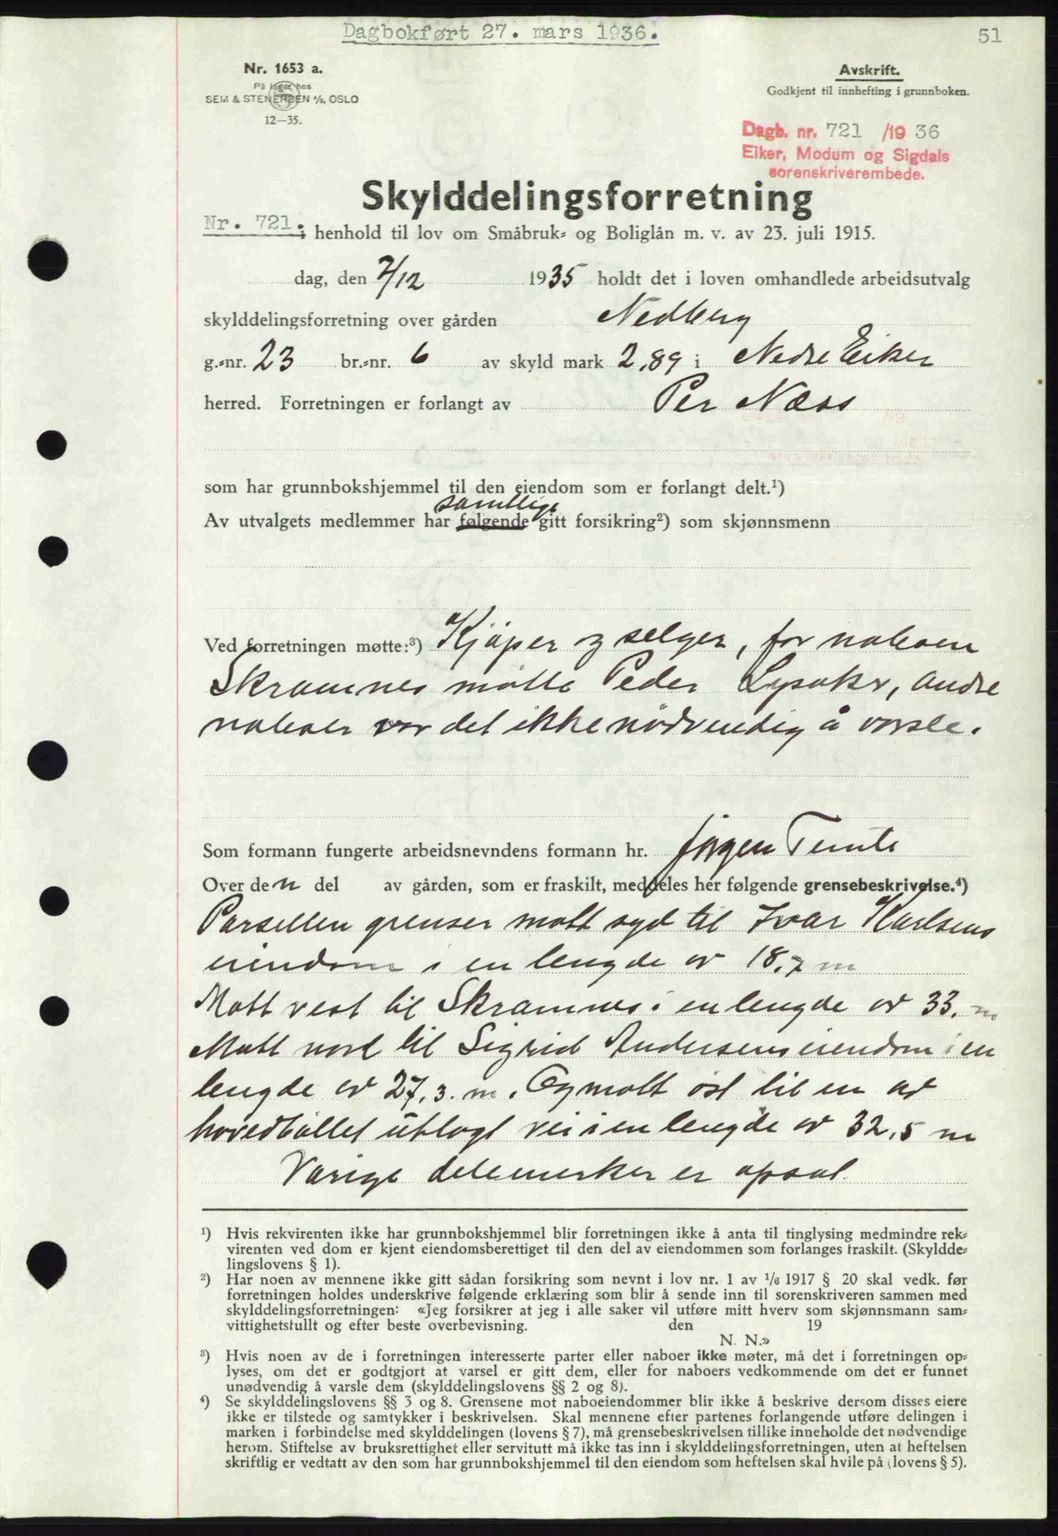 Dagbokført 27. mars 1936.
51
Nr. 1653 a.
På lager hos
SEM & STENERSEN A/S, OSLO
12—35.
Avskrift.
Godkjent til innhefting i grunnboken.
Dagb. nr. 721 /19 36
Eiker, Modum og Sigdals
sorenskriverembede.
Skylddelingsforretning
Nr. 721.
i henhold til lov om Småbruk- og Boliglån m. v. av 23. juli 1915.
dag, den 7/12 1935 holdt det i loven omhandlede arbeidsutvalg
skylddelingsforretning over gården Nedberg
g.-nr. 23 br.-nr. 6 av skyld mark 2,89 i Nedre Eiker
herred. Forretningen er forlangt av Per Næss
som har grunnbokshjemmel til den eiendom som er forlangt delt.¹)
samtlige
Av utvalgets medlemmer har følgende gitt forsikring²) som skjønnsmenn
Ved forretningen møtte:³) Kjøper og selger, for naboen
Skramnes møtte Peder Lysaker, andre
naboer var det ikke nødvendig å varsle.
Som formann fungerte arbeidsnevndens formann hr. Jørgen Temte
Over den del av gården, som er fraskilt, meddeles her følgende grensebeskrivelse.⁴)
Parsellen grenser mott syd til Ivar Karlsens
eiendom i en lengde av 18,7 m
Mott vest til Skramnes i en lengde av 33. m
Mott nord til Sigrid Andersens eiendom i en
lengde av 27,3. m. Og mott øst til en av
hovedbøllet utlagt vei i en lengde av 32,5 m
Varige delemerker er opsat.
¹) Hvis rekvirenten ikke har grunnbokshjemmel blir forretningen ikke å anta til tinglysing medmindre rek-
virenten ved dom er kjent eiendomsberettiget til den del av eiendommen som forlanges fraskilt. (Skyldde-
lingslovens § 1).
²) Har noen av mennene ikke gitt sådan forsikring som nevnt i lov nr. 1 av 1/6 1917 § 20 skal vedk. før
forretningen holdes underskrive følgende erklæring som blir å sende inn til sorenskriveren sammen med
skylddelingsforretningen: «Jeg forsikrer at jeg i alle saker vil utføre mitt hverv som skjønnsmann sam-
vittighetsfullt og efter beste overbevisning. den 19
N. N.»
³) Hvis noen av de i forretningen interesserte parter eller naboer ikke møter, må det i forretningen op-
lyses, om det er godtgjort at varsel er gitt dem, eller for naboers vedkommende om det er funnet
unødvendig å varsle dem (skylddelingslovens §§ 2 og 8).
⁴) Se skylddelingslovens §§ 3 og 8. Grensene mot naboeiendommer blir ikke å beskrive dersom disses eiere
ikke er tilstede og samtykker i beskrivelsen. Skal mennene efter partenes forlangende utføre delingen i
marken i forbindelse med skylddelingen (lovens § 7), må grensebeskrivelsen tillike inneholde det nødvendige
herom. Stiftelse av bruksrettighet eller servitutt må ikke tas inn i skylddelingsforretningen, uten at heftelsen
skriftlig er vedtatt av den som har grunnbokshjemmel til den eiendom som heftelsen skal hvile på (lovens § 5).